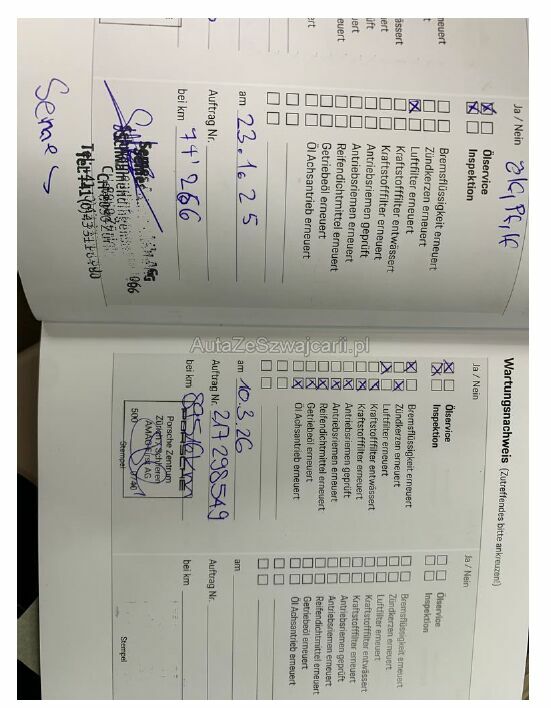 Ja / Nein
Ölservice
Inspektion
Bremsflüssigkeit erneuert
Zündkerzen erneuert
Luftfilter erneuert
Kraftstofffilter entwässert
Kraftstofffilter erneuert
Antriebsriemen geprüft
Antriebsriemen erneuert
Reifendichtmittel erneuert
Getriebeöl erneuert
Öl Achsantrieb erneuert
am 23.1.25
Auftrag Nr.
bei km 74'266
AutaZeSzwajcarii.pl
Wartungsnachweis (Zutreffendes bitte ankreuzen!)
Ja / Nein
Ölservice
Inspektion
Bremsflüssigkeit erneuert
Zündkerzen erneuert
Luftfilter erneuert
Kraftstofffilter entwässert
Kraftstofffilter erneuert
Antriebsriemen geprüft
Antriebsriemen erneuert
Reifendichtmittel erneuert
Getriebeöl erneuert
Öl Achsantrieb erneuert
am 10.3.26
Auftrag Nr. 217298549
bei km
Porsche Zentrum
Zürich Schlieren
AMAG
AG
500
Stempel
Ja / Nein
Ölservice
Inspektion
Bremsflüssigkeit erneuert
Zündkerzen erneuert
Luftfilter erneuert
Kraftstofffilter entwässert
Kraftstofffilter erneuert
Antriebsriemen geprüft
Antriebsriemen erneuert
Reifendichtmittel erneuert
Getriebeöl erneuert
Öl Achsantrieb erneuert
am
Auftrag Nr.
bei km
Stempel